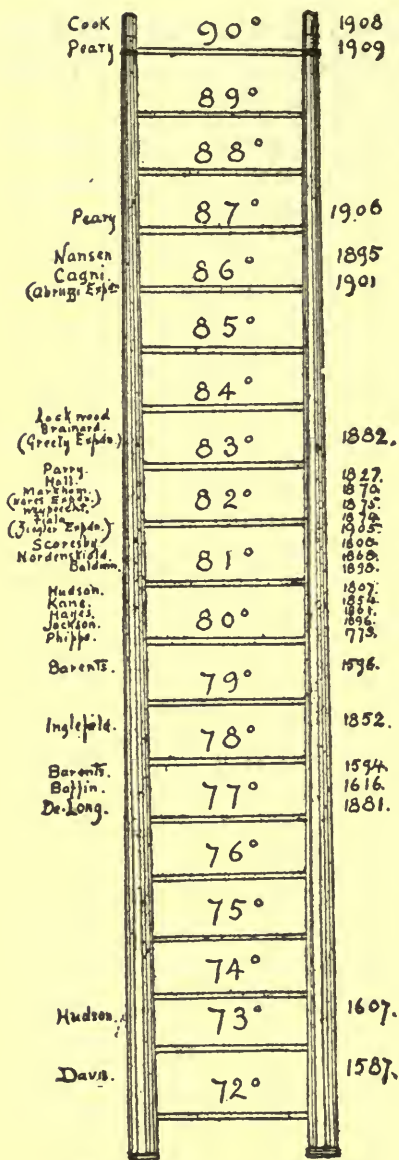 Cook 90° 1908
Peary 1909
89°
88°
Peary 87° 1906
Nansen 1895
Cagni. 86° 1901
(Abruzzi Expdn
85°
84°
Lockwood
Brainard
(Greely Expdn.) 83° 1882.
Parry. 1827.
Hall. 1870.
Markham. 82° 1875.
(Nares Expdn.)
Weyprecht. 1874.
Fiala 1905.
(Ziegler Expdn.)
Scoresby.
Nordenskiold. 81° 1868.
Baldwin. 1898.
Hudson.
Kane. 1854.
Hayes. 80° 1861.
Jackson. 1896.
Phipps. 773.
Barents. 79° 1596.
Inglefield. 78° 1852.
Barents. 1594.
Baffin. 77° 1616.
De-Long. 1881.
76°
75°
74°
Hudson. 73° 1607.
Davis. 72° 1587.